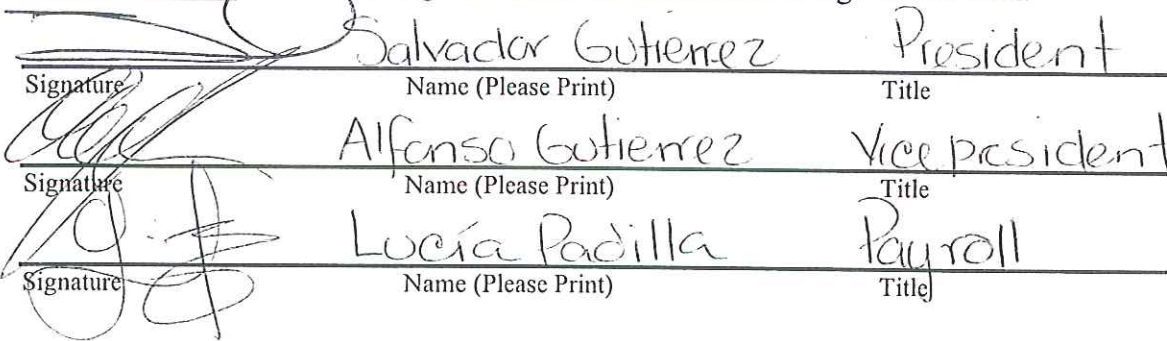 Salvador Gutierrez President
Signature Name (Please Print) Title
Alfonso Gutierrez Vice president
Signature Name (Please Print) Title
Lucía Padilla Payroll
Signature Name (Please Print) Title